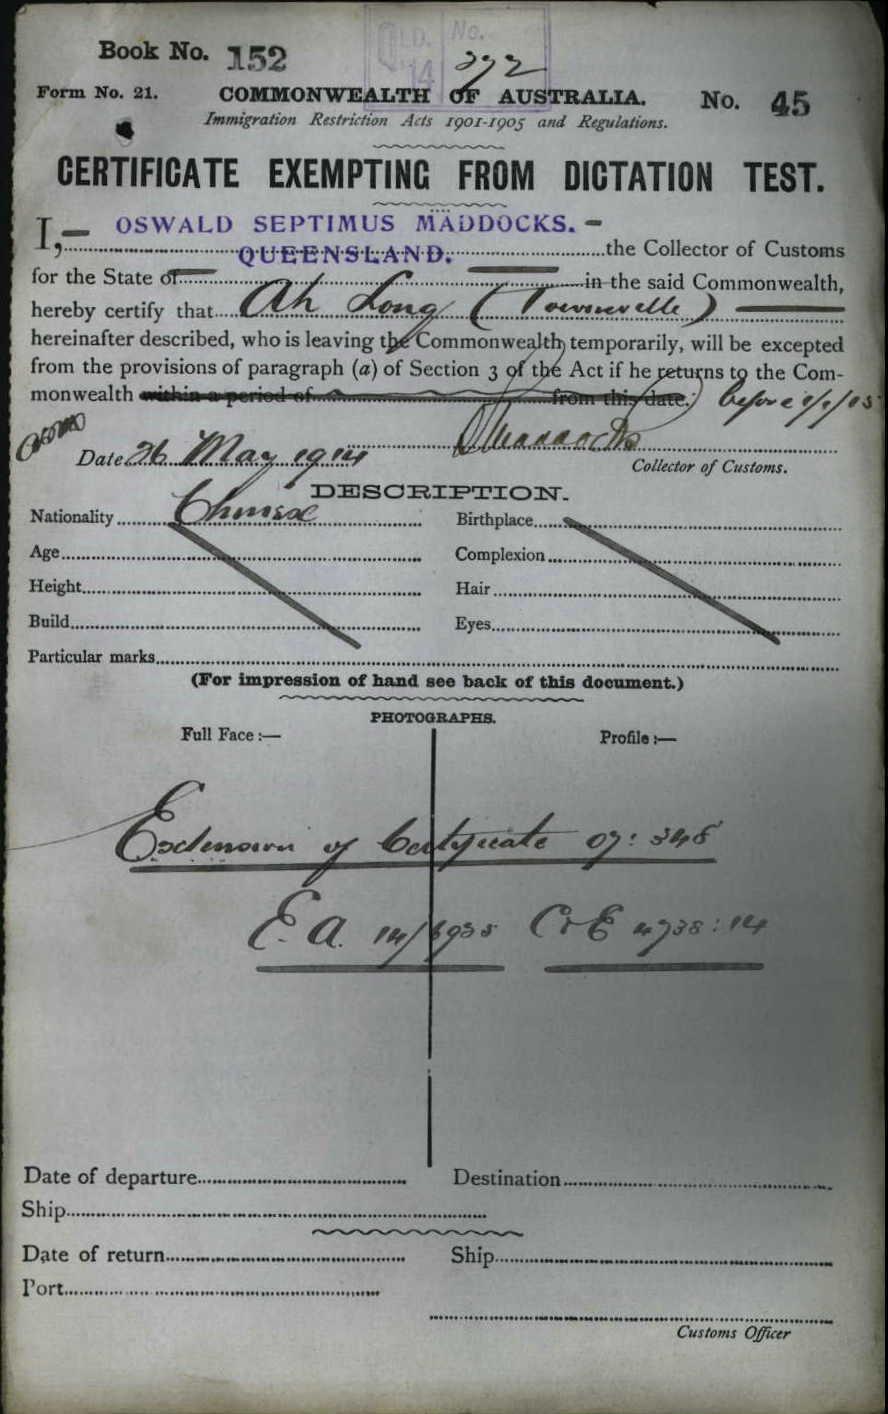 Book No. 152
QLD. No.
14
272
Form No. 21. COMMONWEALTH OF AUSTRALIA. No. 45
Immigration Restriction Acts 1901-1905 and Regulations.
CERTIFICATE EXEMPTING FROM DICTATION TEST.
I, OSWALD SEPTIMUS MADDOCKS. the Collector of Customs
QUEENSLAND.
for the State of in the said Commonwealth,
hereby certify that Ah Long (Townsville)
hereinafter described, who is leaving the Commonwealth temporarily, will be excepted
from the provisions of paragraph (a) of Section 3 of the Act if he returns to the Com-
monwealth within a period of from this date. before
Date 26 May 1914 OMaddocks
Collector of Customs.
DESCRIPTION.
Nationality Chinese Birthplace
Age Complexion
Height Hair
Build Eyes
Particular marks
(For impression of hand see back of this document.)
PHOTOGRAPHS.
Full Face :— Profile :—
Extension of Certificate 07: 348
E.A. 14/6935 C&E 4738: 14
Date of departure Destination
Ship
Date of return Ship
Port
Customs Officer